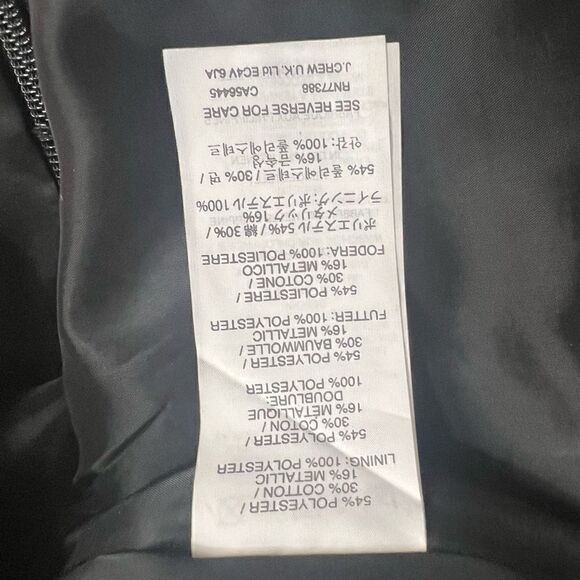 54% POLYESTER /
30% COTTON /
16% METALLIC
LINING: 100% POLYESTER
54% POLYESTER /
30% COTON /
16% MÉTALLIQUE
DOUBLURE:
100% POLYESTER
54% POLYESTER /
30% BAUMWOLLE /
16% METALLIC
FUTTER: 100% POLYESTER
54% POLIESTERE /
30% COTONE /
16% METALLICO
FODERA: 100% POLIESTERE
ポリエステル 54% / 綿 30% /
メタリック 16%
ライニング: ポリエステル 100%
54% 폴리에스테르 / 30% 면 /
16% 금속성
안감: 100% 폴리에스테르
SEE REVERSE FOR CARE
RN77388 CA56445
J.CREW U.K. Ltd EC4V 6JA